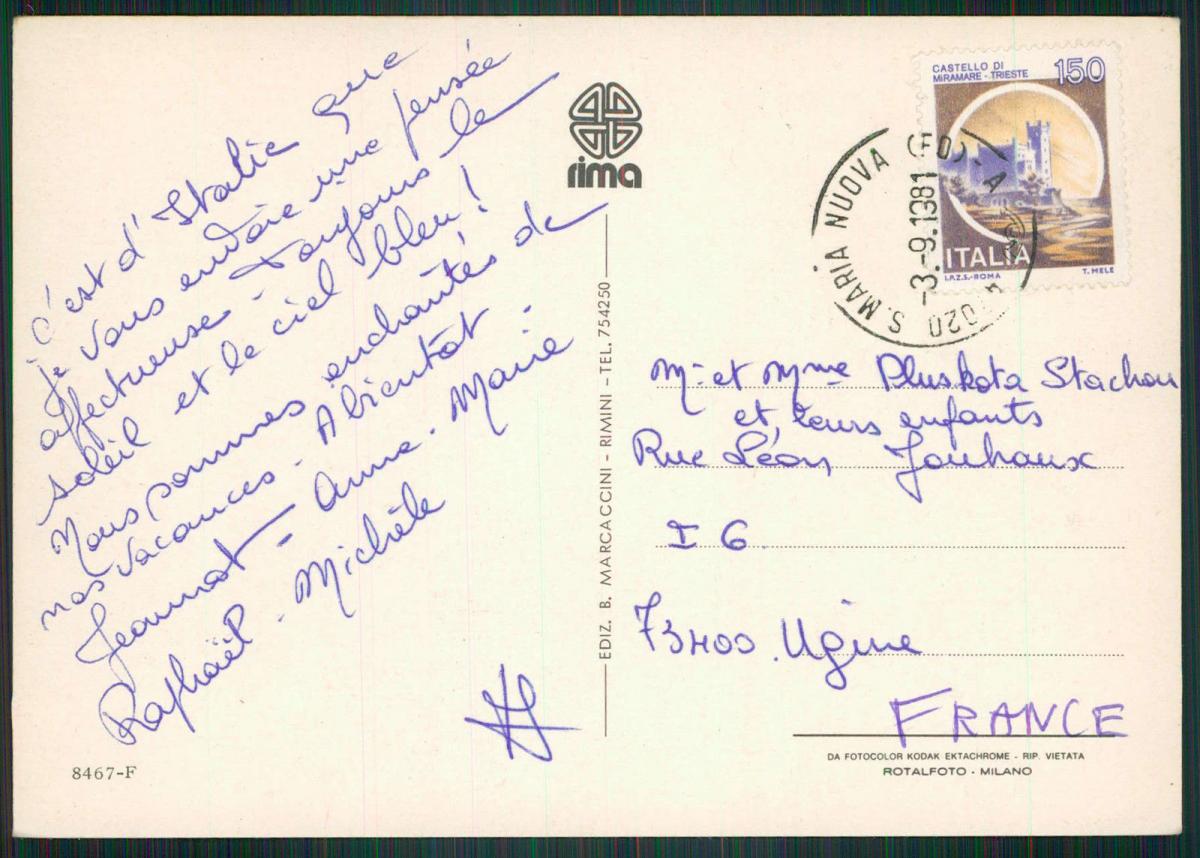 c'est d'Italie que
je vous envoie une pensée
affectueuse. Toujours le
soleil et le ciel bleu !
Nous sommes enchantés de
nos vacances. A bientôt.
Jeannot - Anne-Marie
Raphaël - Michèle
8467-F
rima
EDIZ. B. MARCACCINI - RIMINI - TEL. 754250
CASTELLO DI
MIRAMARE - TRIESTE
150
ITALIA
I.P.Z.S.-ROMA
T. MELE
S. MARIA NUOVA (FO) - A
-3.-9.1981
Mr et Mme Pluskota Stachou
et leurs enfants
Rue Léon Jouhaux
I 6
73400 Ugine
FRANCE
DA FOTOCOLOR KODAK EKTACHROME - RIP. VIETATA
ROTALFOTO - MILANO